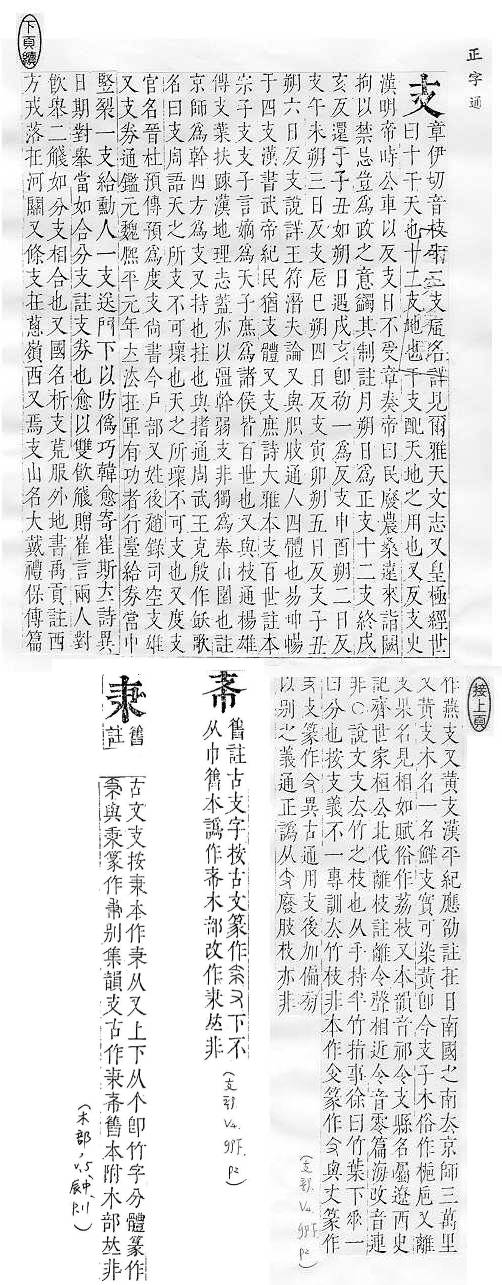 下頁續
正字通
支 章伊切音枝干支歲名詳見爾雅天文志又皇極經世
曰十干天也十二支地也干支配天地之用也又反支史
漢明帝時公車以反支日不受章奏帝曰民廢農桑遠來詣闕
拘以禁忌豈爲政之意蠲其制註月朔日爲正支十二支終戌
亥反還于子丑如朔日遇戌亥卽初一爲反支申酉朔二日反
支午未朔三日反支辰巳朔四日反支寅卯朔五日反支子丑
朔六日反支說詳王符潛夫論又與肢胑通人四體也易坤暢
于四支漢書武帝紀民猶支體又支庶詩大雅本支百世註本
宗子支支子言嫡爲天子庶爲諸侯皆百世也又與枝通楊雄
傳支葉扶踈漢地理志葢亦以彊幹弱支非獨爲奉山園也註
京師爲幹四方爲支又持也拄也與搘通周武王克殷作飫歌
名曰支周語天之所支不可壞也天之所壞不可支也又度支
官名晉杜預傳預爲度支尚書今戶部又姓後趙錄司空支雄
又支券通鑑元魏熙平元年立法在軍有功者行臺給券當中
竪裂一支給勳人一支送門下以防僞巧韓愈寄崔斯立詩異
日期對舉當如合分支註支券也愈以雙飮觥贈崔言兩人對
飮舉二觥如分支相合也又國名析支荒服外地書禹貢註西
方戎落在河關又條支在蔥嶺西又焉支山名大戴禮保傅篇
接上頁
作燕支又黃支漢平紀應劭註在日南國之南去京師三萬里
又黃支木名一名鮮支實可染黃卽今支子木俗作梔巵又離
支果名見相如賦俗作荔枝又本韻音祁令支縣名屬遼西史
記齊世家桓公北伐離枝註離令聲相近令音零篇海改音連
非○說文支去竹之枝也从手持半竹指事徐曰竹葉下垂一
曰分也按支義不一專訓去竹枝非本作 篆作 與丈篆作
支篆作 異古通用支後加偏旁
以别之義通正譌从 廢肢枝亦非
(支部, V4. 98F. P2)
舊註古支字按古文篆作 下不
从巾舊本譌作 木部改作 𠀤非
(支部, V4. 98F. P2)
舊註
古文支按 本作 从又上下从个卽竹字分體篆作
與秉篆作 别集韻支古作 舊本附木部𠀤非
(木部, V.5 辰中, P.11)